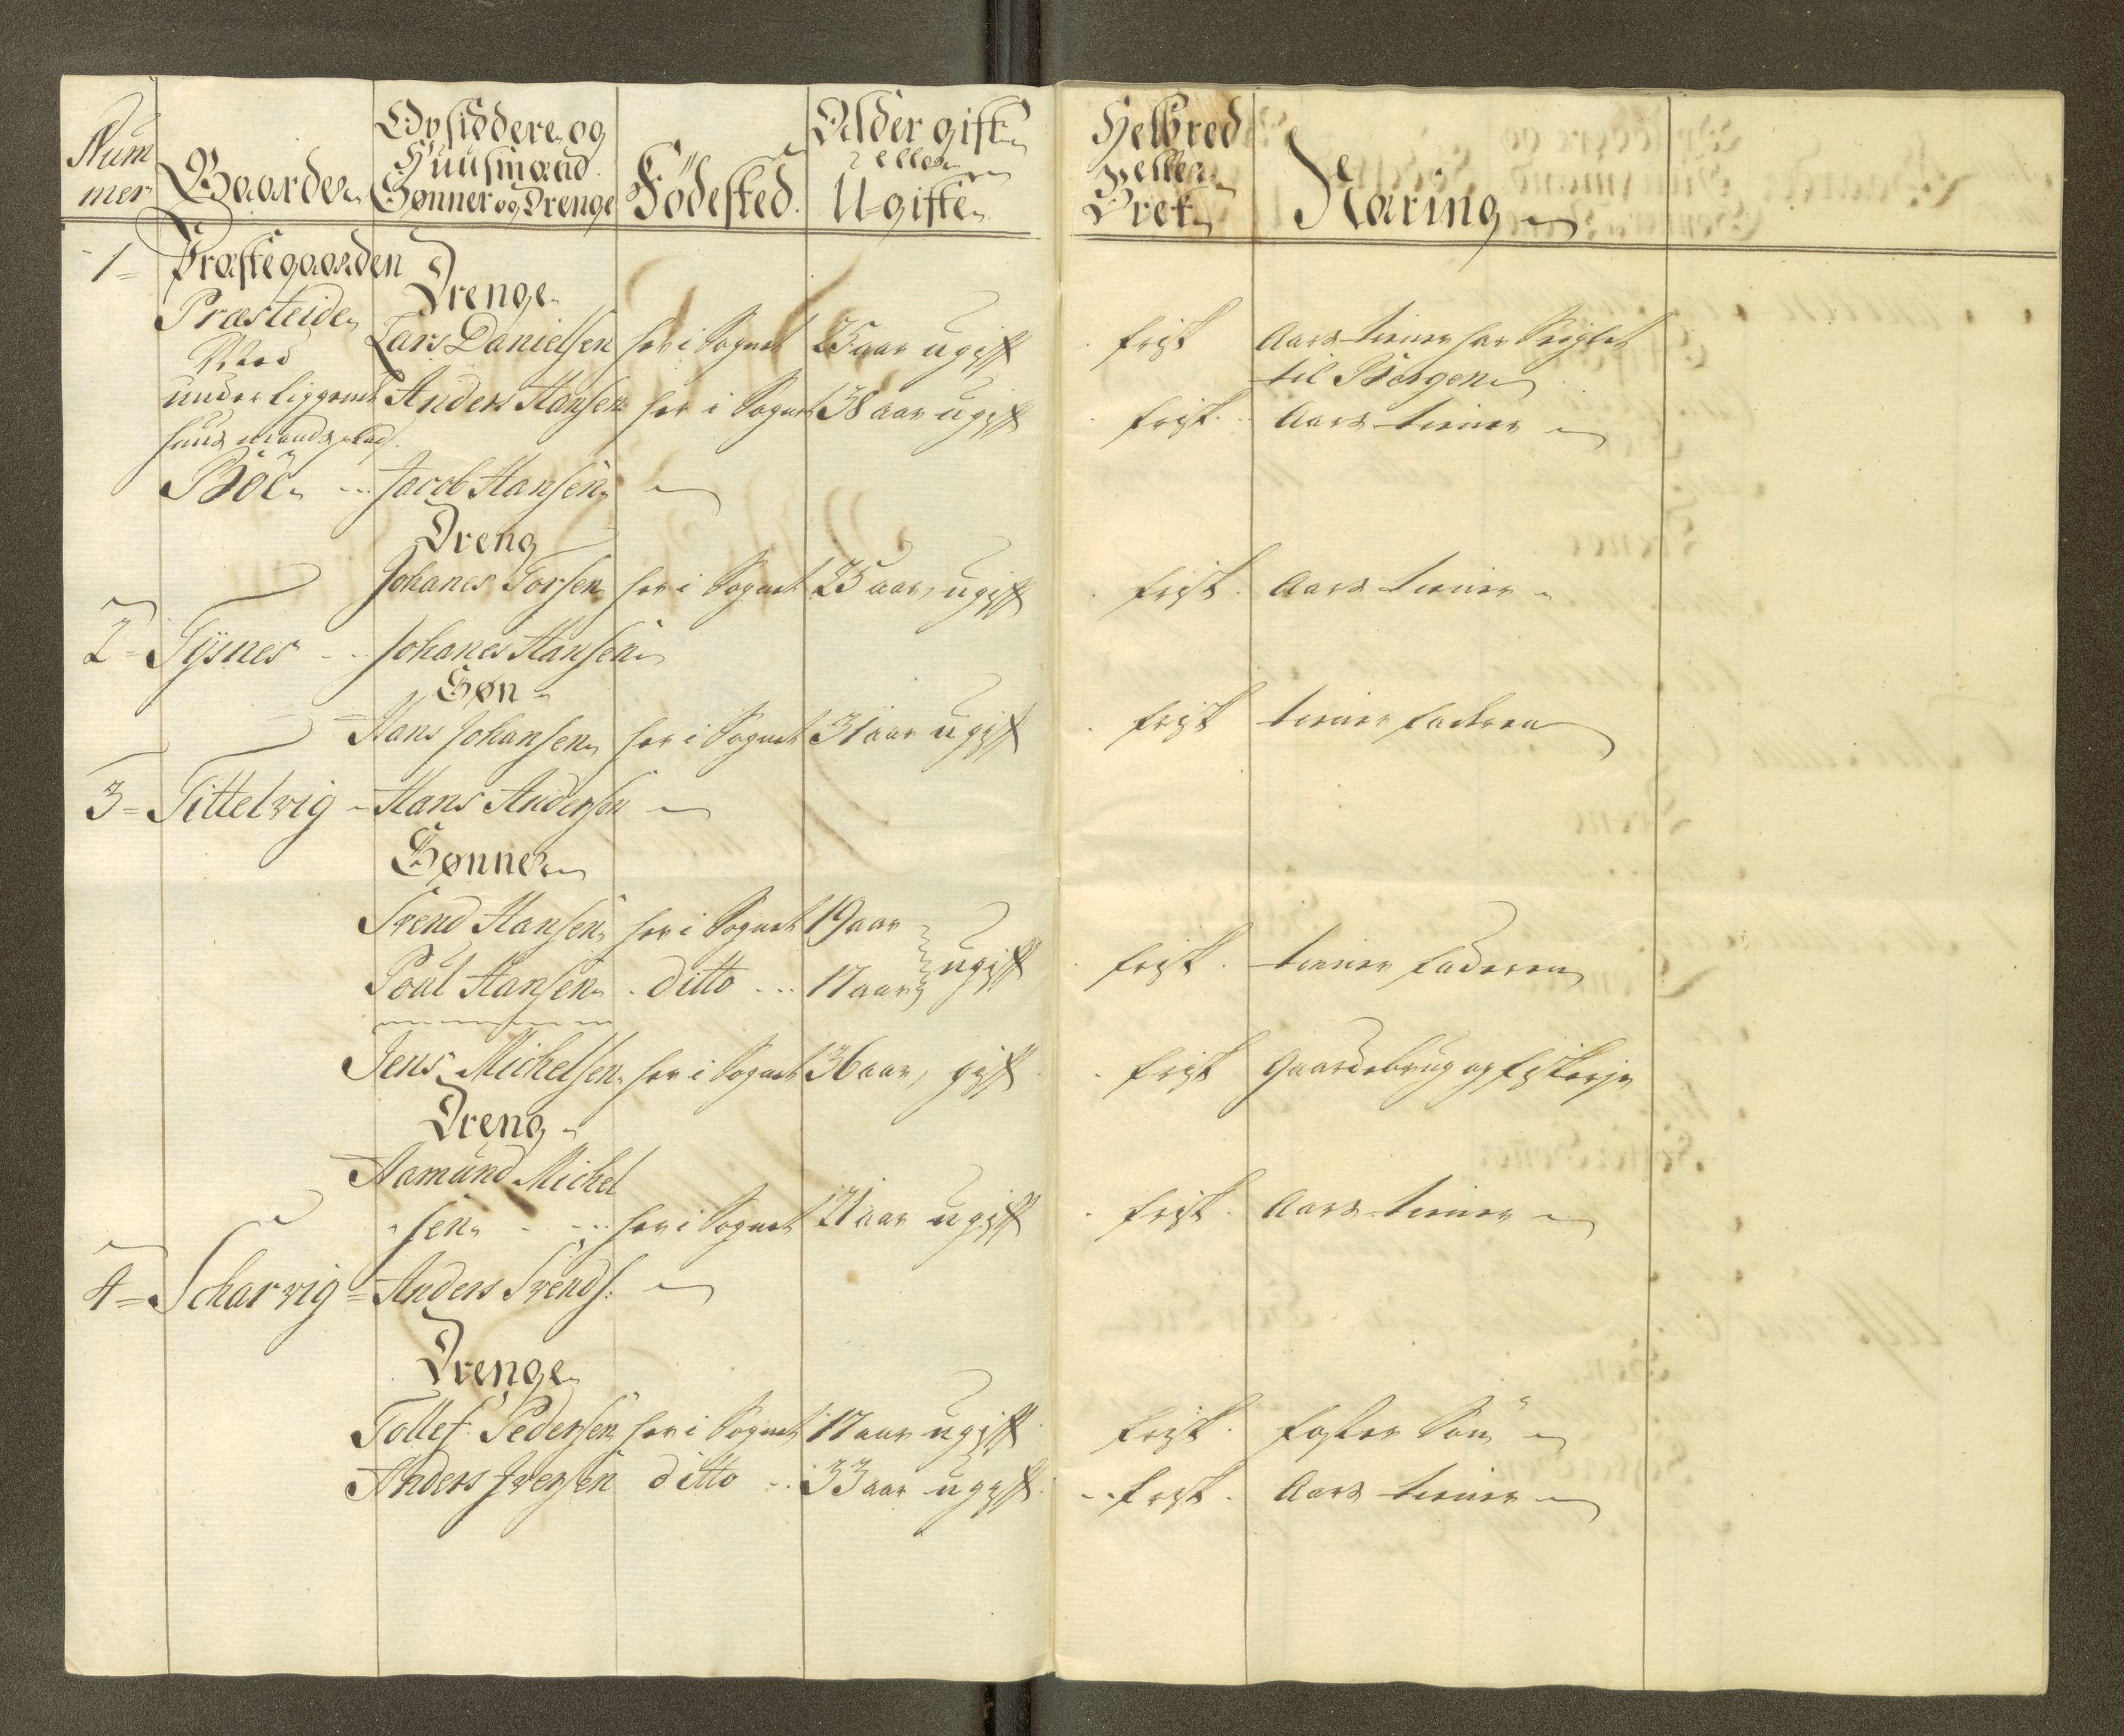 Num
mer
Gaarder
Opsiddere og
Huusmænd
Sønner og Drenge
Födested.
Alder gift
eller
Ugifte
Helbred
eller
Vrek
Næring
1 = Præstegaarden
Drenge
Præsteide
Lars Danielsen her i Sognet 25 aar ugift frisk Aars tiener har Seiglet
Med
til Bergen
underliggende Anders Hansen her i Sognet 38 aar ugift frisk. Aars tiener
huusmandsplads.
Böe Jacob Hansen
Dreng
Johanes Torsen her i Sognet 25 aar, ugift frisk. Aars tiener
2 = Tÿsnes Johanes Hansen
Søn
Hans Johansen her i Sognet 31 aar ugift frisk tiener faderen
3 = Tittelvig Hans Andersen
Sønner
Svend Hansen her i Sognet 19 aar
Poul Hansen ditto 17 aar ugift frisk. tiener faderen
Jens Michelsen her i Sognet 36 aar, gift frisk Gaardebrug og fiskerie
Dreng
Aamund Michel
sen her i Sognet 21 aar ugift frisk. Aars tiener
4 = Scharvig = Anders Svends:
Drenge
Tollef Pedersen her i Sognet 17 aar ugift frisk. foster Sön
Anders Iversen ditto 33 aar ugift frisk. Aars tiener